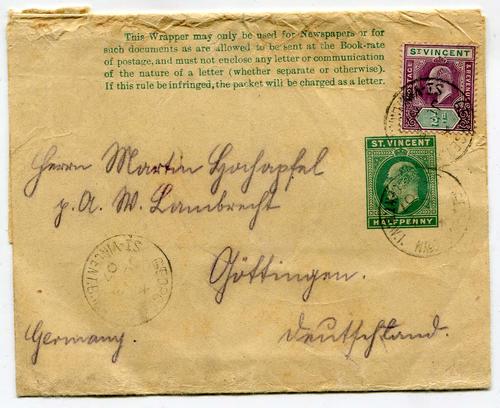 This Wrapper may only be used for Newspapers or for
such documents as are allowed to be sent at the Book-rate
of postage, and must not enclose any letter or communication
of the nature of a letter (whether separate or otherwise).
If this rule be infringed, the packet will be charged as a letter.
ST VINCENT
POSTAGE & REVENUE
½d
ST. VINCENT
HALFPENNY
Herrn Martin Hochapfel
p. A. W. Lambrecht
Göttingen.
Germany. Deutschland.